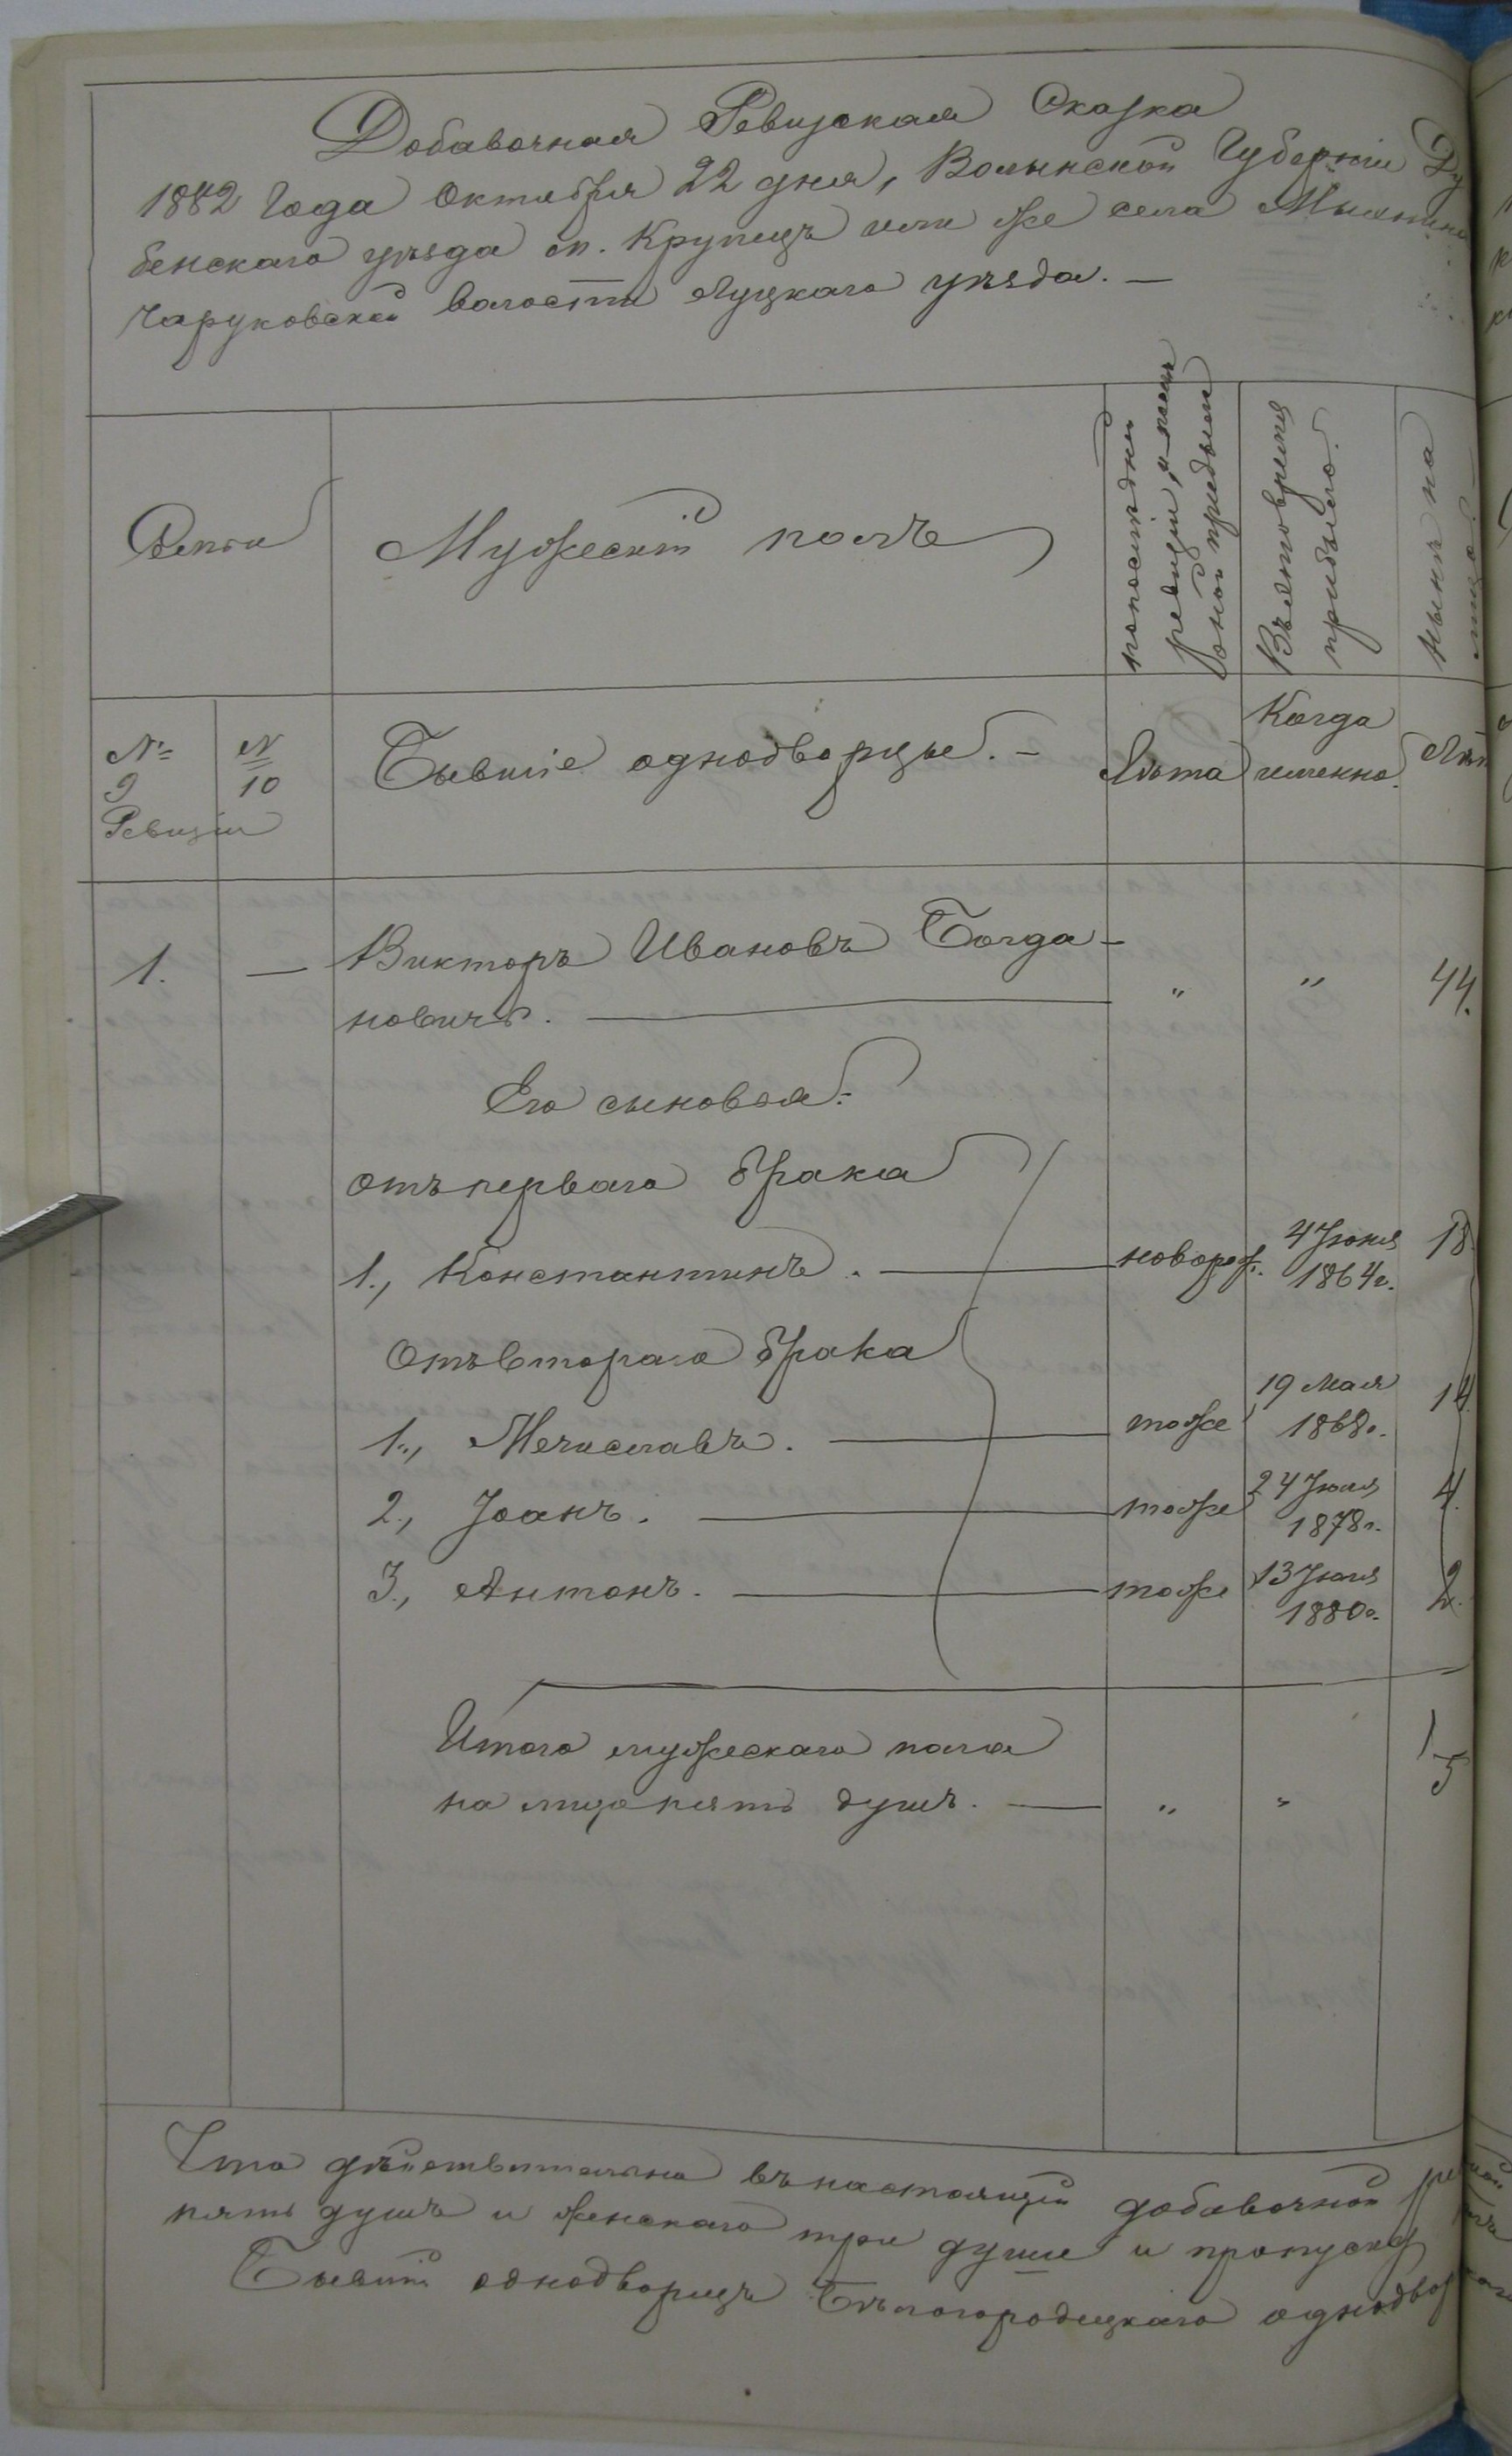 Добавочная Ревизская Сказка
1882 Года Октября 22 дня, Волынской Губерніи Ду
бенскаго уѣзда м. Крупецъ или же села
Чаруковской волости Луцкаго уѣзда. —
Семьи
Мужескій полъ
по послѣдней
ревизіи, и послѣ
оной прибыли
Въ это время
прибыло.
Нынѣ на
лицо.
№ 9
№ 10
Ревизіи
Бывшіе однодворцы. —
Лѣта
Когда
именно.
Лѣт
1. — Викторъ Ивановъ Богда-
новичъ. — " " 44.
Его сыновья:
отъ перваго брака
1., Константинъ. — новорож. 4 Іюня 1864 г. 18
Отъ втораго брака
1., Мечиславъ. — тоже 19 Мая 1868 г. 14.
2., Іоанъ. — тоже 24 Іюля 1878 г. 4.
3., Антонъ. — тоже 13 Іюля 1880 г. 2.
Итого мужескаго пола
на лицо пять душъ. — " " 5
Что дѣйствительно въ настоящей добавочной
пять душъ и женскаго три души и пропуск
Бывшій однодворецъ Бѣлогородецкаго однодвор